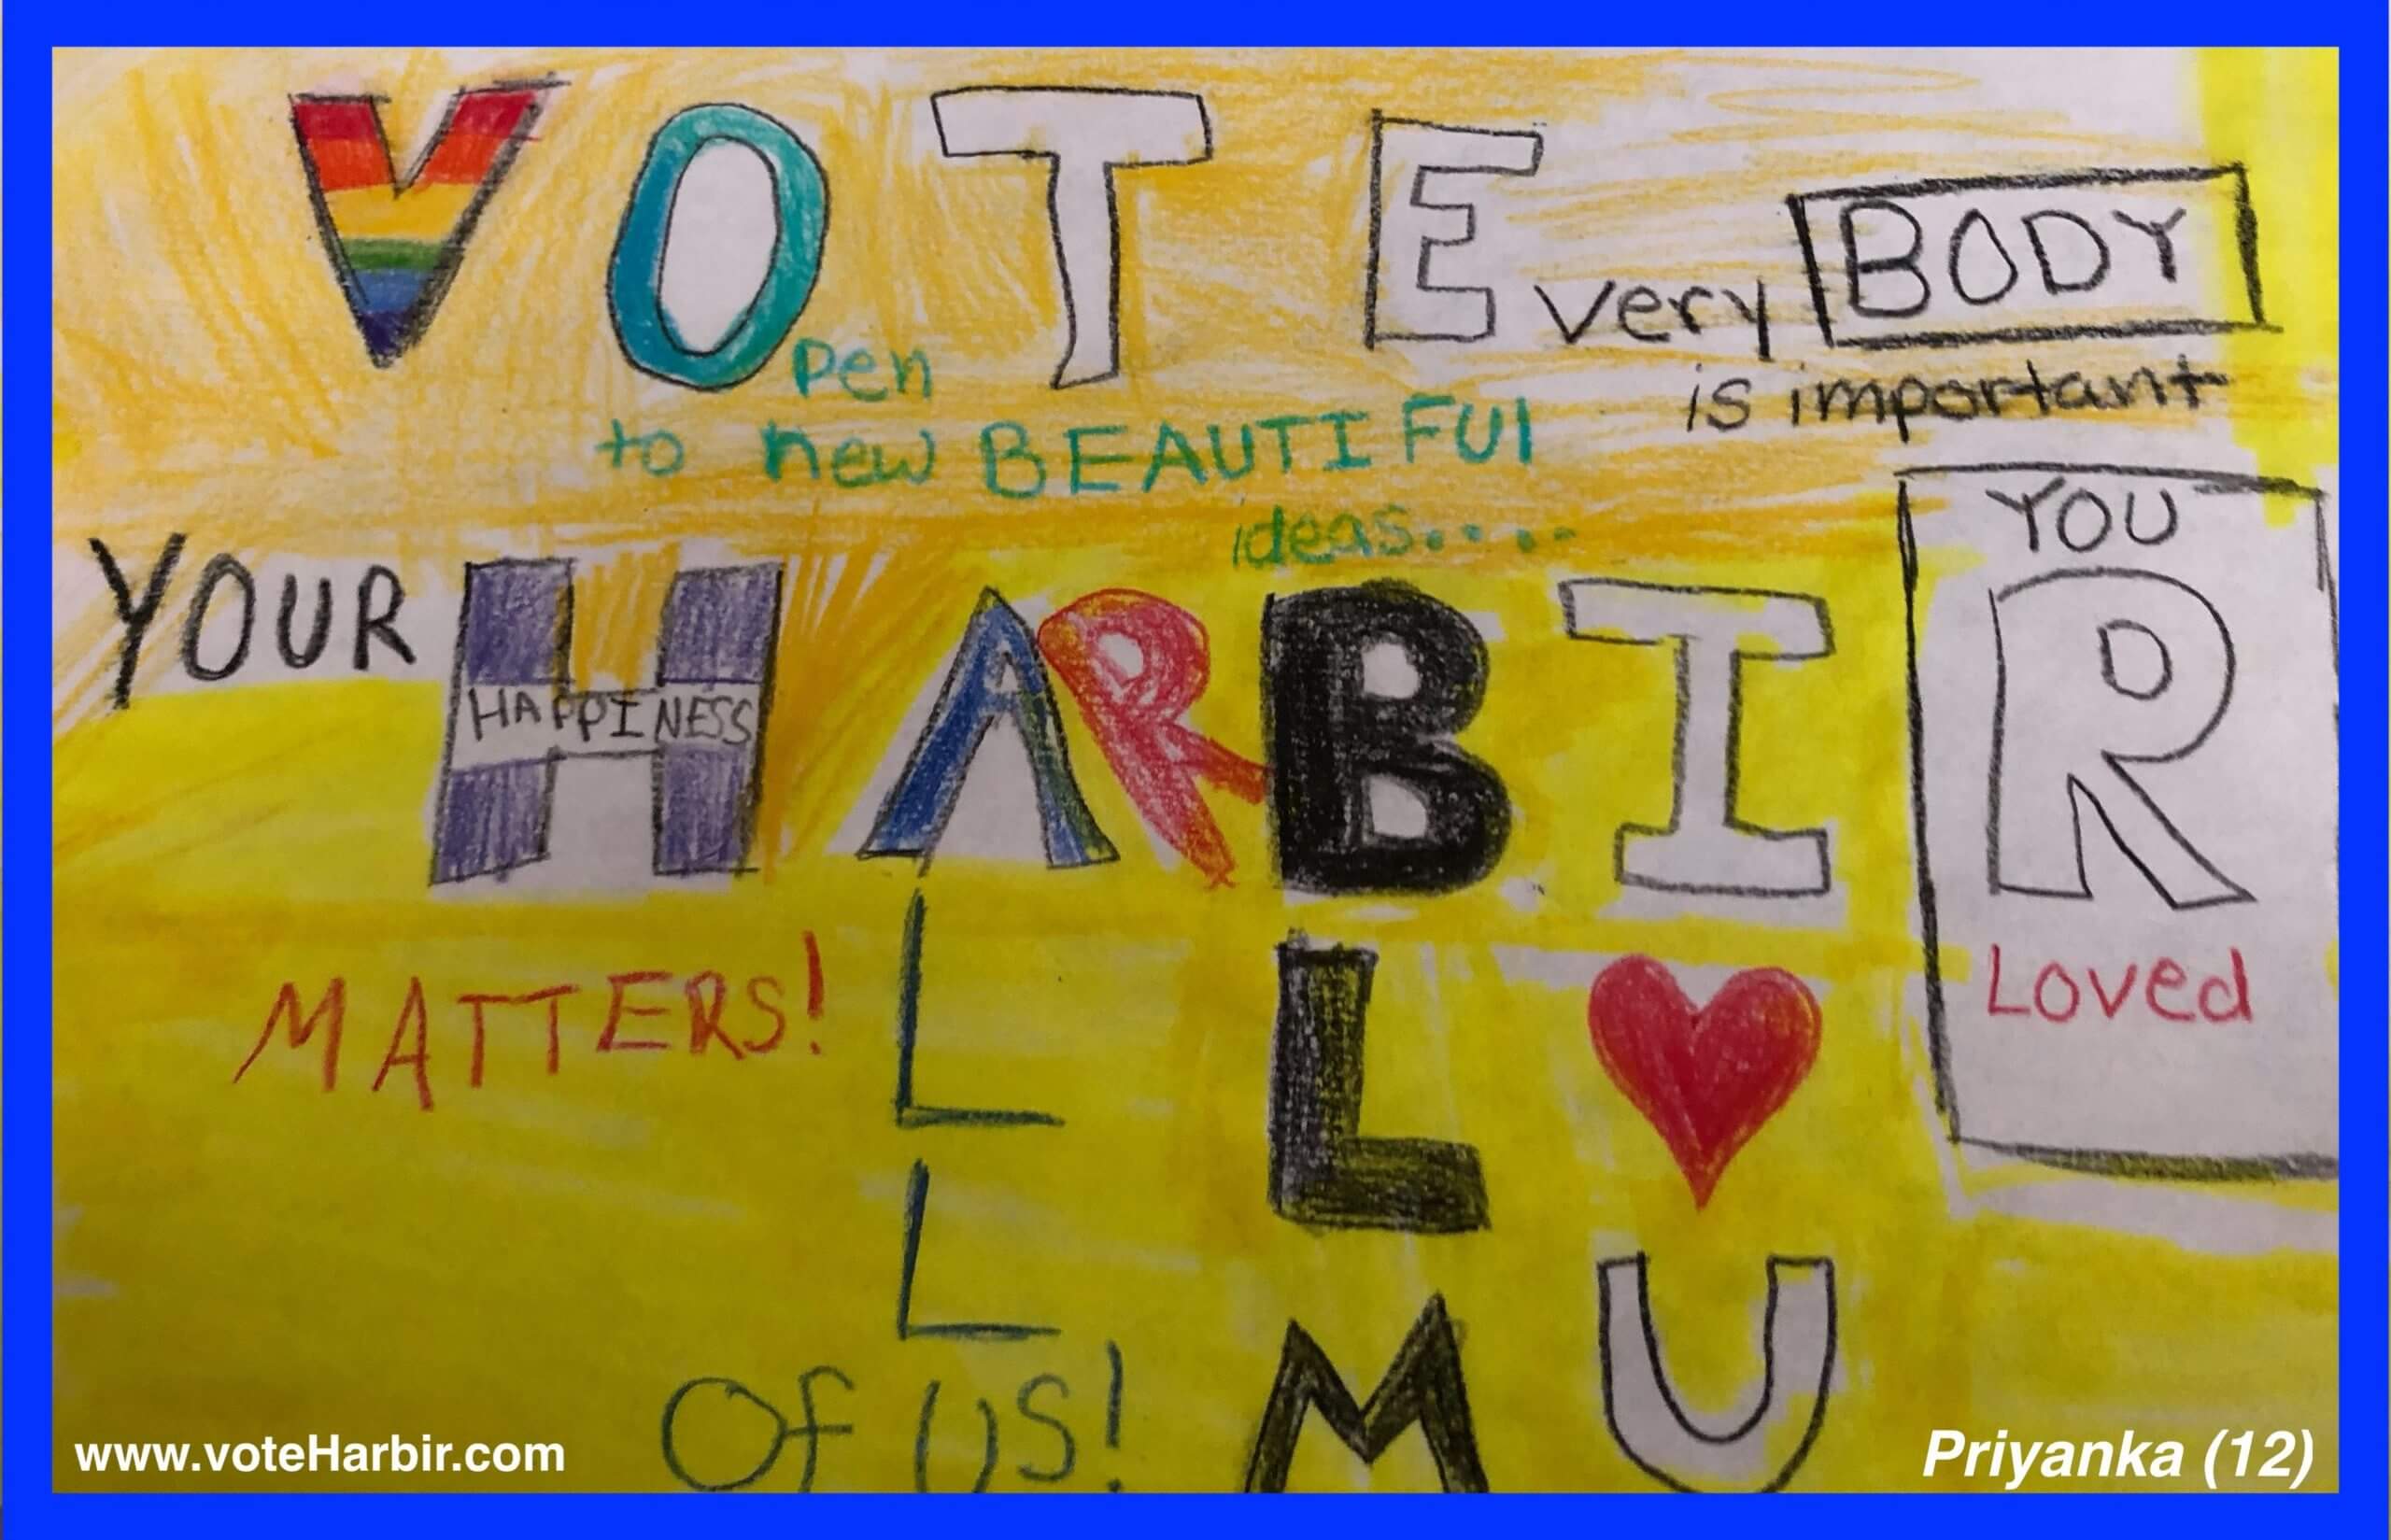 VOTE
Open
to new BEAUTIFUl
ideas.....
Every BODY
is important
YOUR HARBIR
HAPPINESS
MATTERS!
ALL
OF US!
BLM
I ♥ U
YOU
R
Loved
www.voteHarbir.com
Priyanka (12)